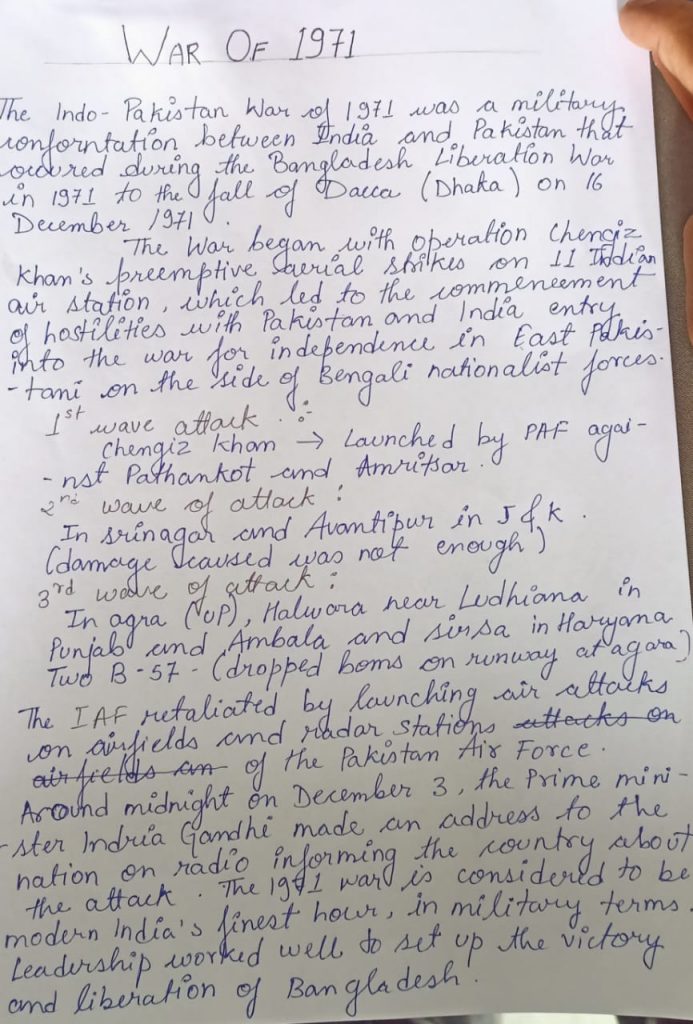 WAR OF 1971
The Indo-Pakistan War of 1971 was a military
conforntation between India and Pakistan that
occured during the Bangladesh Liberation War
in 1971 to the fall of Dacca (Dhaka) on 16
December 1971.
The War began with operation Chengiz
Khan's preemptive aerial strikes on 11 Indian
air station, which led to the commencement
of hostilities with Pakistan and India entry
into the war for independence in East Pakis-
-tani on the side of Bengali nationalist forces.
1st wave attack :-
Chengiz Khan → Launched by PAF agai-
-nst Pathankot and Amritsar.
2nd wave of attack :
In srinagar and Avantipur in J & K.
(damage caused was not enough)
3rd wave of attack :
In agra (UP), Halwara near Ludhiana in
Punjab and Ambala and sirsa in Haryana
Two B-57 - (dropped boms on runway at agara)
The IAF retaliated by launching air attacks
on airfields and radar stations attacks on
airfields an of the Pakistan Air Force.
Around midnight on December 3, the Prime mini-
-ster Indria Gandhi made an address to the
nation on radio informing the country about
the attack. The 1971 war is considered to be
modern India's finest hour, in military terms.
Leadership worked well to set up the victory
and liberation of Bangladesh.